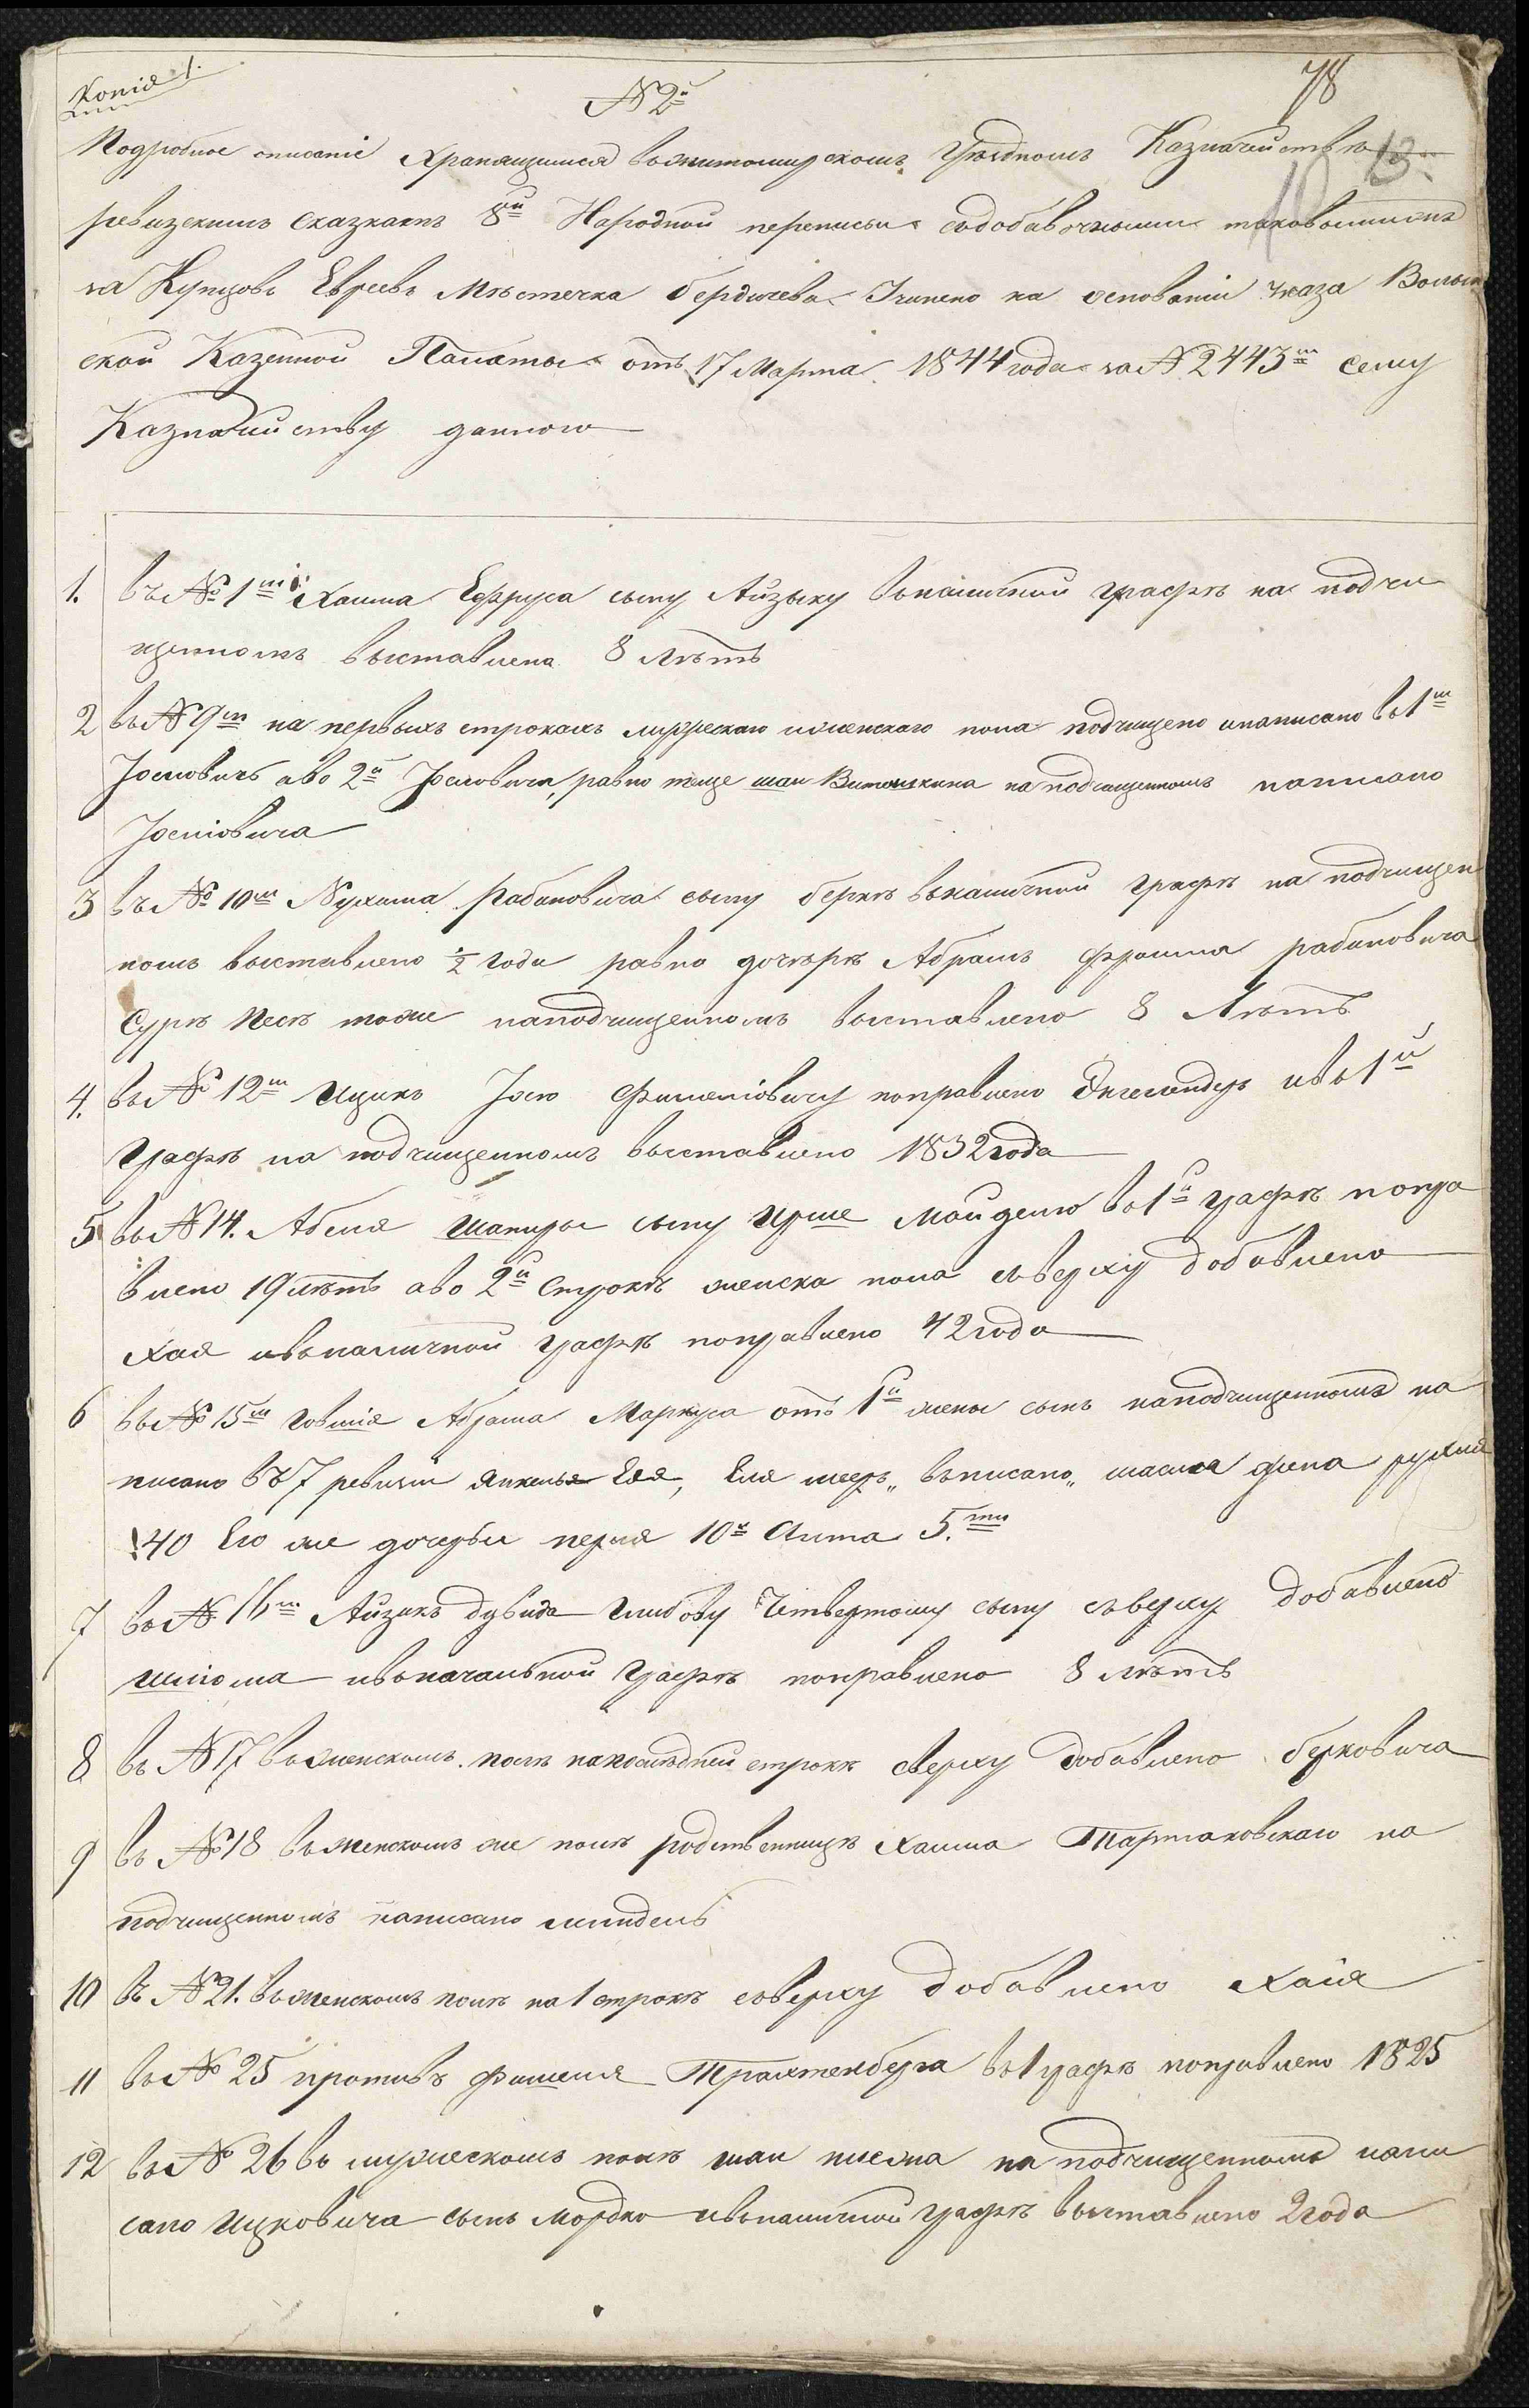 Копія 1.
№ 2й
78
13
Подробное описаніе Хранящимся въ Житомирскомъ Уѣздномъ Казначействѣ
ревизскимъ сказкамъ 8й Народной переписи съ добавочными таковыми же
на Купцовъ Евреевъ Мѣстечка Бердичева. Учинено на основаніи Указа Волын
ской Казенной Палаты отъ 17 Марта 1844 года за № 2443м сему
Казначейству данного
1. въ № 1м Хаима Ефруса сыну Айзыку въ наличной графѣ на подчи
щенномъ выставлена 8 лѣтъ
2 въ № 9м на первыхъ строкахъ мужескаго и женскаго пола подчищено и написано въ 1м
Іосіовичъ а во 2й Іосіовича, равно теще Шаи на подчищенномъ написано
Іосіовича
3 въ № 10м Нухима Рабиновича сыну Берке въ наличной графѣ на подчищен
номъ выставлено ½ года равно дочерѣ Абрамъ Фроима рабиновича
Сурѣ Песѣ тоже на подчищенномъ выставлено 8 Лѣтъ
4. въ № 12м Ицикъ Іосю поправлено и въ 1й
Графѣ на подчищенномъ выставлено 1832 года
5 въ № 14. Абеля Шапиры сыну Ирше Майделю въ 1й графѣ попра
влено 19 лѣтъ а во 2й Строкѣ женска пола съверху добавлено
Хая и въ наличной графѣ поправлено 42 года
6 въ № 15м Абрама Маркуса отъ 1й жены сынъ на подчищенномъ на
писано въ 7 ревизіи Еля, Еля мееръ „ въписано „ жена рухля
40 Его же дочерьи перля 10и Сима 5.ти
7 въ № 16м Айзикъ Дувида Глибову Четвертому сыну съверху добавлено
Шліома и въ началъной Графѣ поправлено 8 лѣтъ
8 въ № 17 въ женскомъ полѣ на последней строкѣ сверху добавлено берковича
9 въ № 18 въ женскомъ же полѣ родственницѣ Хаима Тартаковскаго на
подчищенномъ написано миндель
10 въ № 21. въ женскомъ полѣ на 1 строкѣ съверху добавлено Хая
11 въ № 25 противъ Фишеля Трахтенберга въ 1 графѣ поправлено 1825
12 въ № 26 въ мужескомъ полѣ Шаи на подчищенномъ напи
сано Ицковича сынъ Мордко и въ наличной графѣ выставлено 2 года